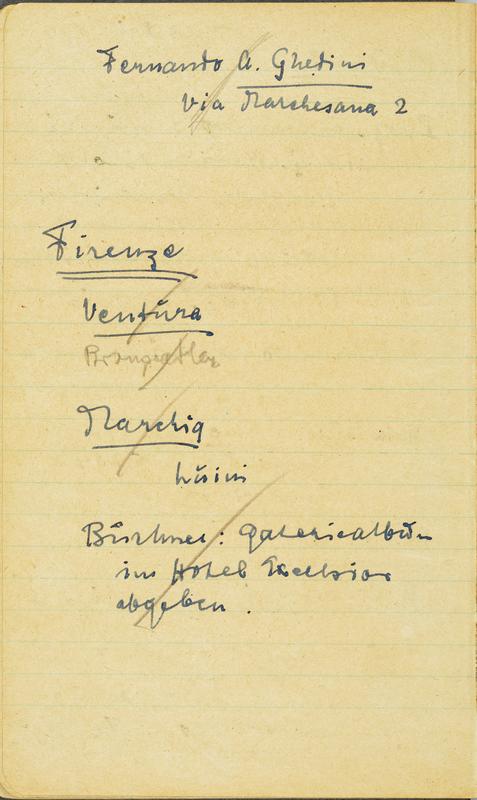 Fernando A. Ghedini
Via Marchesana 2
Firenze
Ventura
Marchig
Büchner: Galeriealbum
im Hotel Excelsior
abgeben.